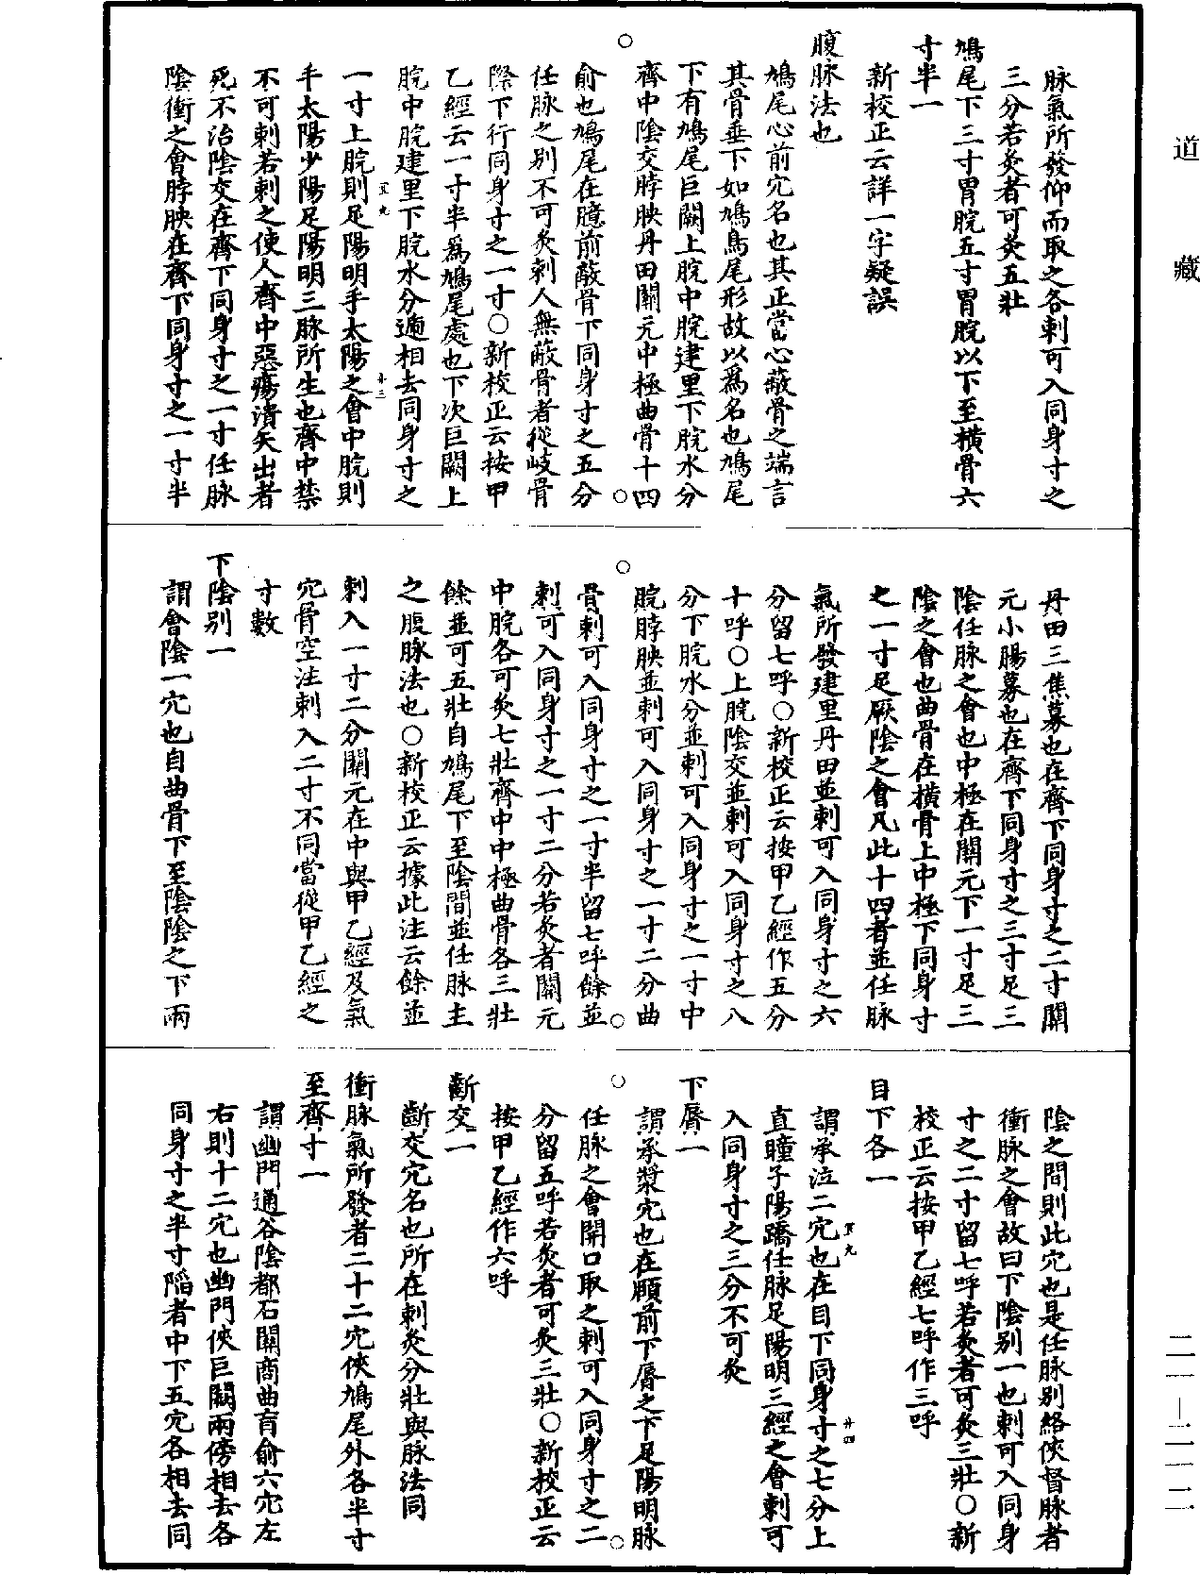 道藏
脉氣所發仰而取之各刺可入同身寸之
三分若灸者可灸五壯
鳩尾下三寸胃脘五寸胃脘以下至橫骨六
寸半一
新校正云詳一字疑誤
腹脉法也
鳩尾心前穴名也其正當心蔽骨之端言
其骨垂下如鳩鳥尾形故以爲名也鳩尾
下有鳩尾巨闕上脘中脘建里下脘水分
齊中陰交脖胦丹田關元中極曲骨十四
俞也鳩尾在臆前蔽骨下同身寸之五分
任脉之別不可灸刺人無蔽骨者從岐骨
際下行同身寸之一寸○新校正云按甲
乙經云一寸半爲鳩尾處也下次巨闕上
脘中脘建里下脘水分遞相去同身寸之
一寸上脘則足陽明手太陽之會中脘則
手太陽少陽足陽明三脉所生也齊中禁
不可刺若刺之使人齊中惡瘍潰矢出者
死不治陰交在齊下同身寸之一寸任脉
陰衝之會脖胦在齊下同身寸之一寸半
丹田三焦募也在齊下同身寸之二寸關
元小腸募也在齊下同身寸之三寸足三
陰任脉之會也中極在關元下一寸足三
陰之會也曲骨在橫骨上中極下同身寸
之一寸足厥陰之會凡此十四者並任脉
氣所發建里丹田並刺可入同身寸之六
分留七呼○新校正云按甲乙經作五分
十呼○上脘陰交並刺可入同身寸之八
分下脘水分並刺可入同身寸之一寸中
脘脖胦並刺可入同身寸之一寸二分曲
骨刺可入同身寸之一寸半留七呼餘並
刺可入同身寸之一寸二分若灸者關元
中脘各可灸七壯齊中中極曲骨各三壯
餘並可五壯自鳩尾下至陰間並任脉主
之腹脉法也○新校正云據此注云餘並
刺入一寸二分關元在中與甲乙經及氣
穴骨空注刺入二寸不同當從甲乙經之
寸數
下陰別一
謂會陰一穴也自曲骨下至陰陰之下兩
陰之間則此穴也是任脉別絡俠督脉者
衝脉之會故曰下陰別一也刺可入同身
寸之二寸留七呼若灸者可灸三壯○新
校正云按甲乙經七呼作三呼
目下各一
謂承泣二穴也在目下同身寸之七分上
直瞳子陽蹻任脉足陽明三經之會刺可
入同身寸之三分不可灸
下脣一
謂承漿穴也在頤前下脣之下足陽明脉
任脉之會開口取之刺可入同身寸之二
分留五呼若灸者可灸三壯○新校正云
按甲乙經作六呼
齗交一
齗交穴名也所在刺灸分壯與脉法同
衝脉氣所發者二十二穴俠鳩尾外各半寸
至齊寸一
謂幽門通谷陰都石關商曲肓俞六穴左
右則十二穴也幽門俠巨闕兩傍相去各
同身寸之半寸陷者中下五穴各相去同
二一—二一二